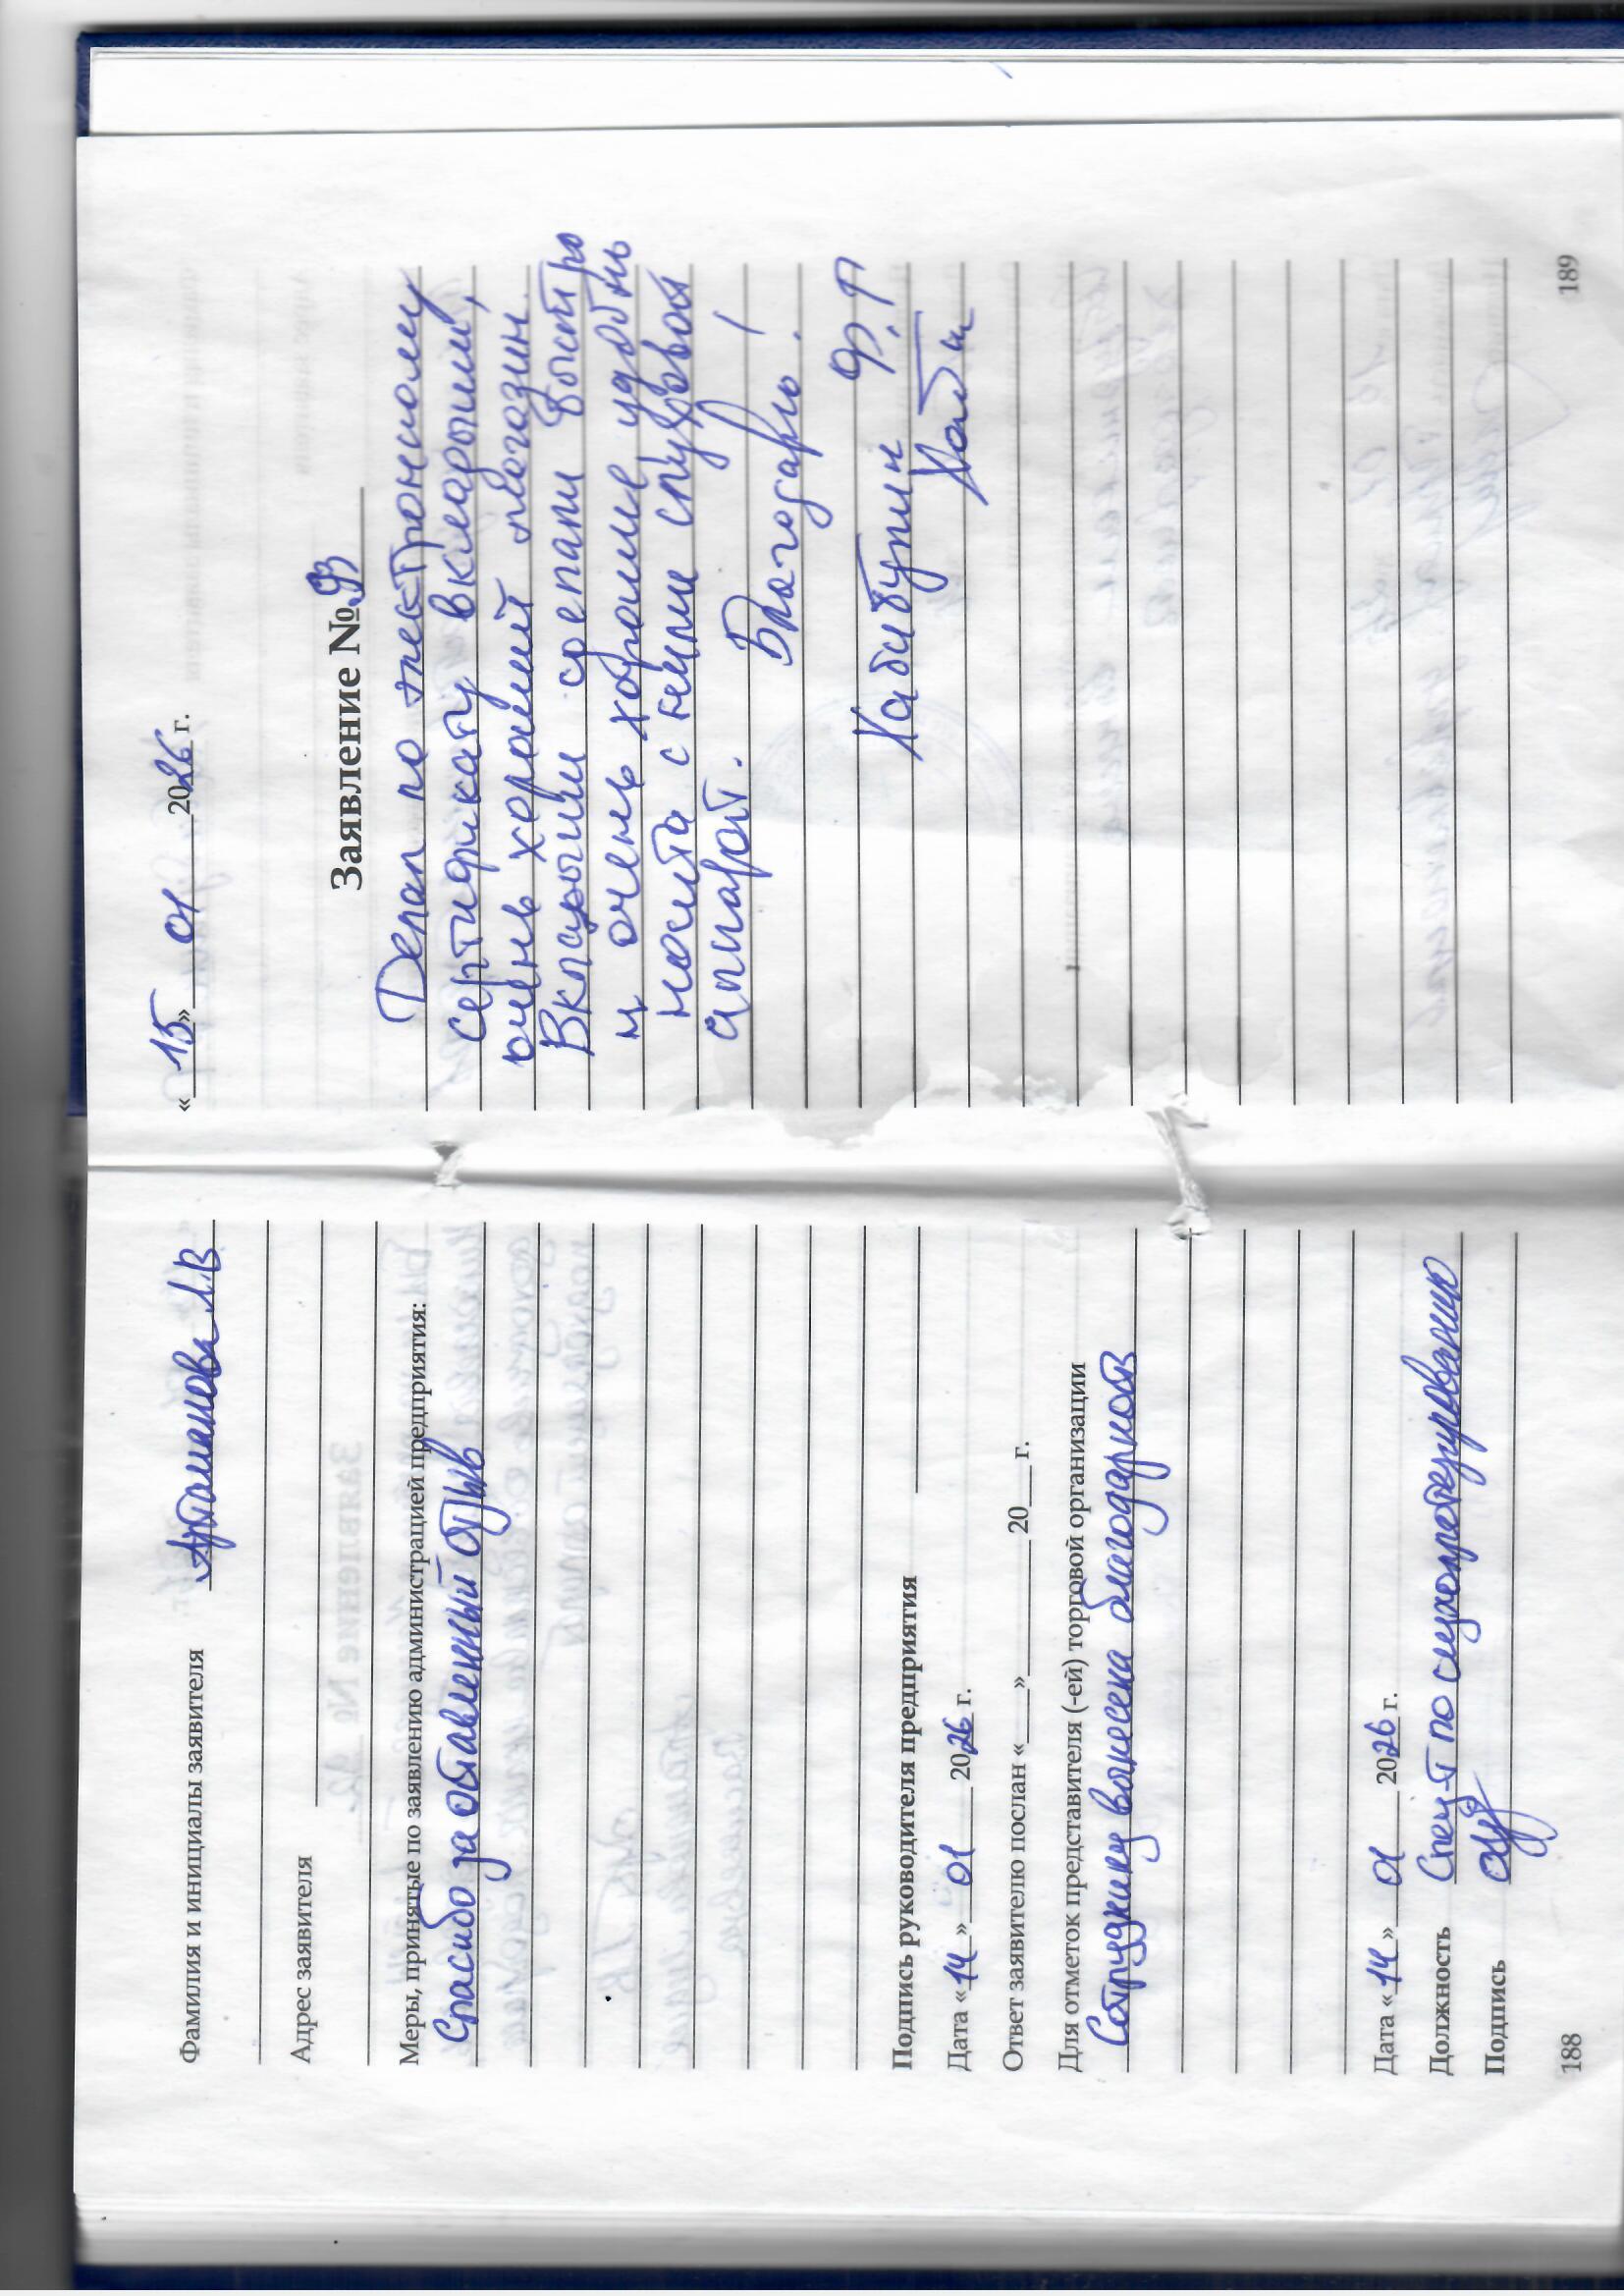 Фамилия и инициалы заявителя Артамонова Л.В
Адрес заявителя
Меры, принятые по заявлению администрацией предприятия:
Спасибо за оставленный отзыв
Подпись руководителя предприятия
Дата «14» 01 2026 г.
Ответ заявителю послан «___» ______ 20__ г.
Для отметок представителя (-ей) торговой организации
Сотруднику вынесена благодарность
Дата «14» 01 2026 г.
Должность Спец-т по слухопротезированию
Подпись
188
«15» 01 2026 г.
Заявление № 93
Делал по электронному
сертификату вкладыши,
очень хороший магазин.
Вкладыши сделали быстро
и очень хорошие удобны
носить с ними слуховой
аппарат.
Благодарю!
Хабибулин Ф.Г
189